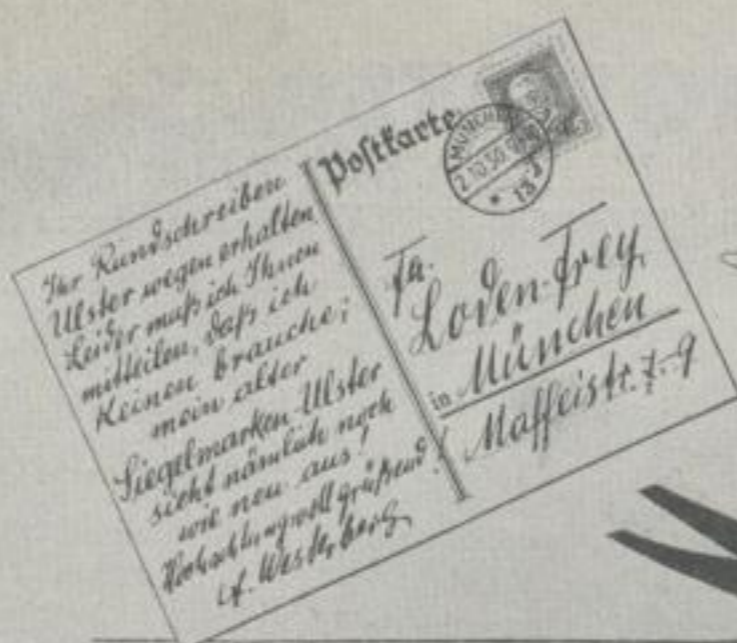 Ihr Rundschreiben
Ulster wegen erhalten
Leider muß ich Ihnen
mitteilen, daß ich
keinen brauche;
mein alter
Siegelmarken-Ulster
sieht nämlich noch
wie neu aus!
Hochachtungsvoll grüßend!
A. Westerberg
Postkarte
MÜNCHEN
2.10.30
Fa.
Loden-Frey
in München
Maffeistr. 7-9